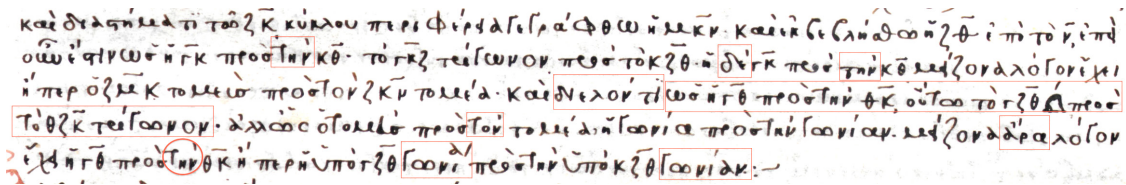 καὶ διαστήματι τῶ ζκ κύκλου περιφέρεια γεγράφθω ἡ μκν· καὶ ἐκβεβλήσθω ἡ ζθ ἐπὶ τὸ ν, ἐπεὶ
οὖν ἐστιν ὡς ἡ γκ πρὸς τὴν κθ· τὸ γκζ τρίγωνον πρὸς τὸ κζθ· ἡ δὲ γκ πρὸς τὴν κθ μείζονα λόγον ἔχει
ἤπερ ὁ ζμκ τομεὺς πρὸς τὸν ζκν τομέα· καὶ διελόντι ὡς ἡ γθ πρὸς τὴν θκ, οὕτω τὸ γζθ Δ πρὸς
τὸ θζκ τρίγωνον· ἀλλ' ὡς ὁ τομεὺς πρὸς τὸν τομέα, ἡ γωνία πρὸς τὴν γωνίαν. μείζονα ἄρα λόγον
ἔχει ἡ γθ πρὸς τὴν θκ ἤπερ ἡ ὑπὸ γζθ γωνία πρὸς τὴν ὑπὸ κζθ γωνίαν:~